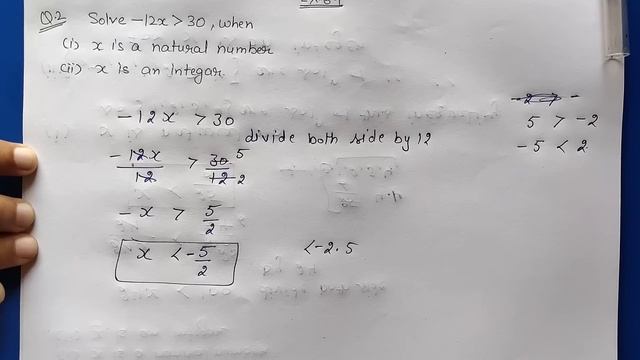 Q.2 Solve -12x > 30, when
(i) x is a natural number
(ii) x is an integar
-12x > 30
divide both side by 12
-12x/12 > 30/12 5 2
-x > 5/2
x < -5/2
< -2.5
5 > -2
-5 < 2